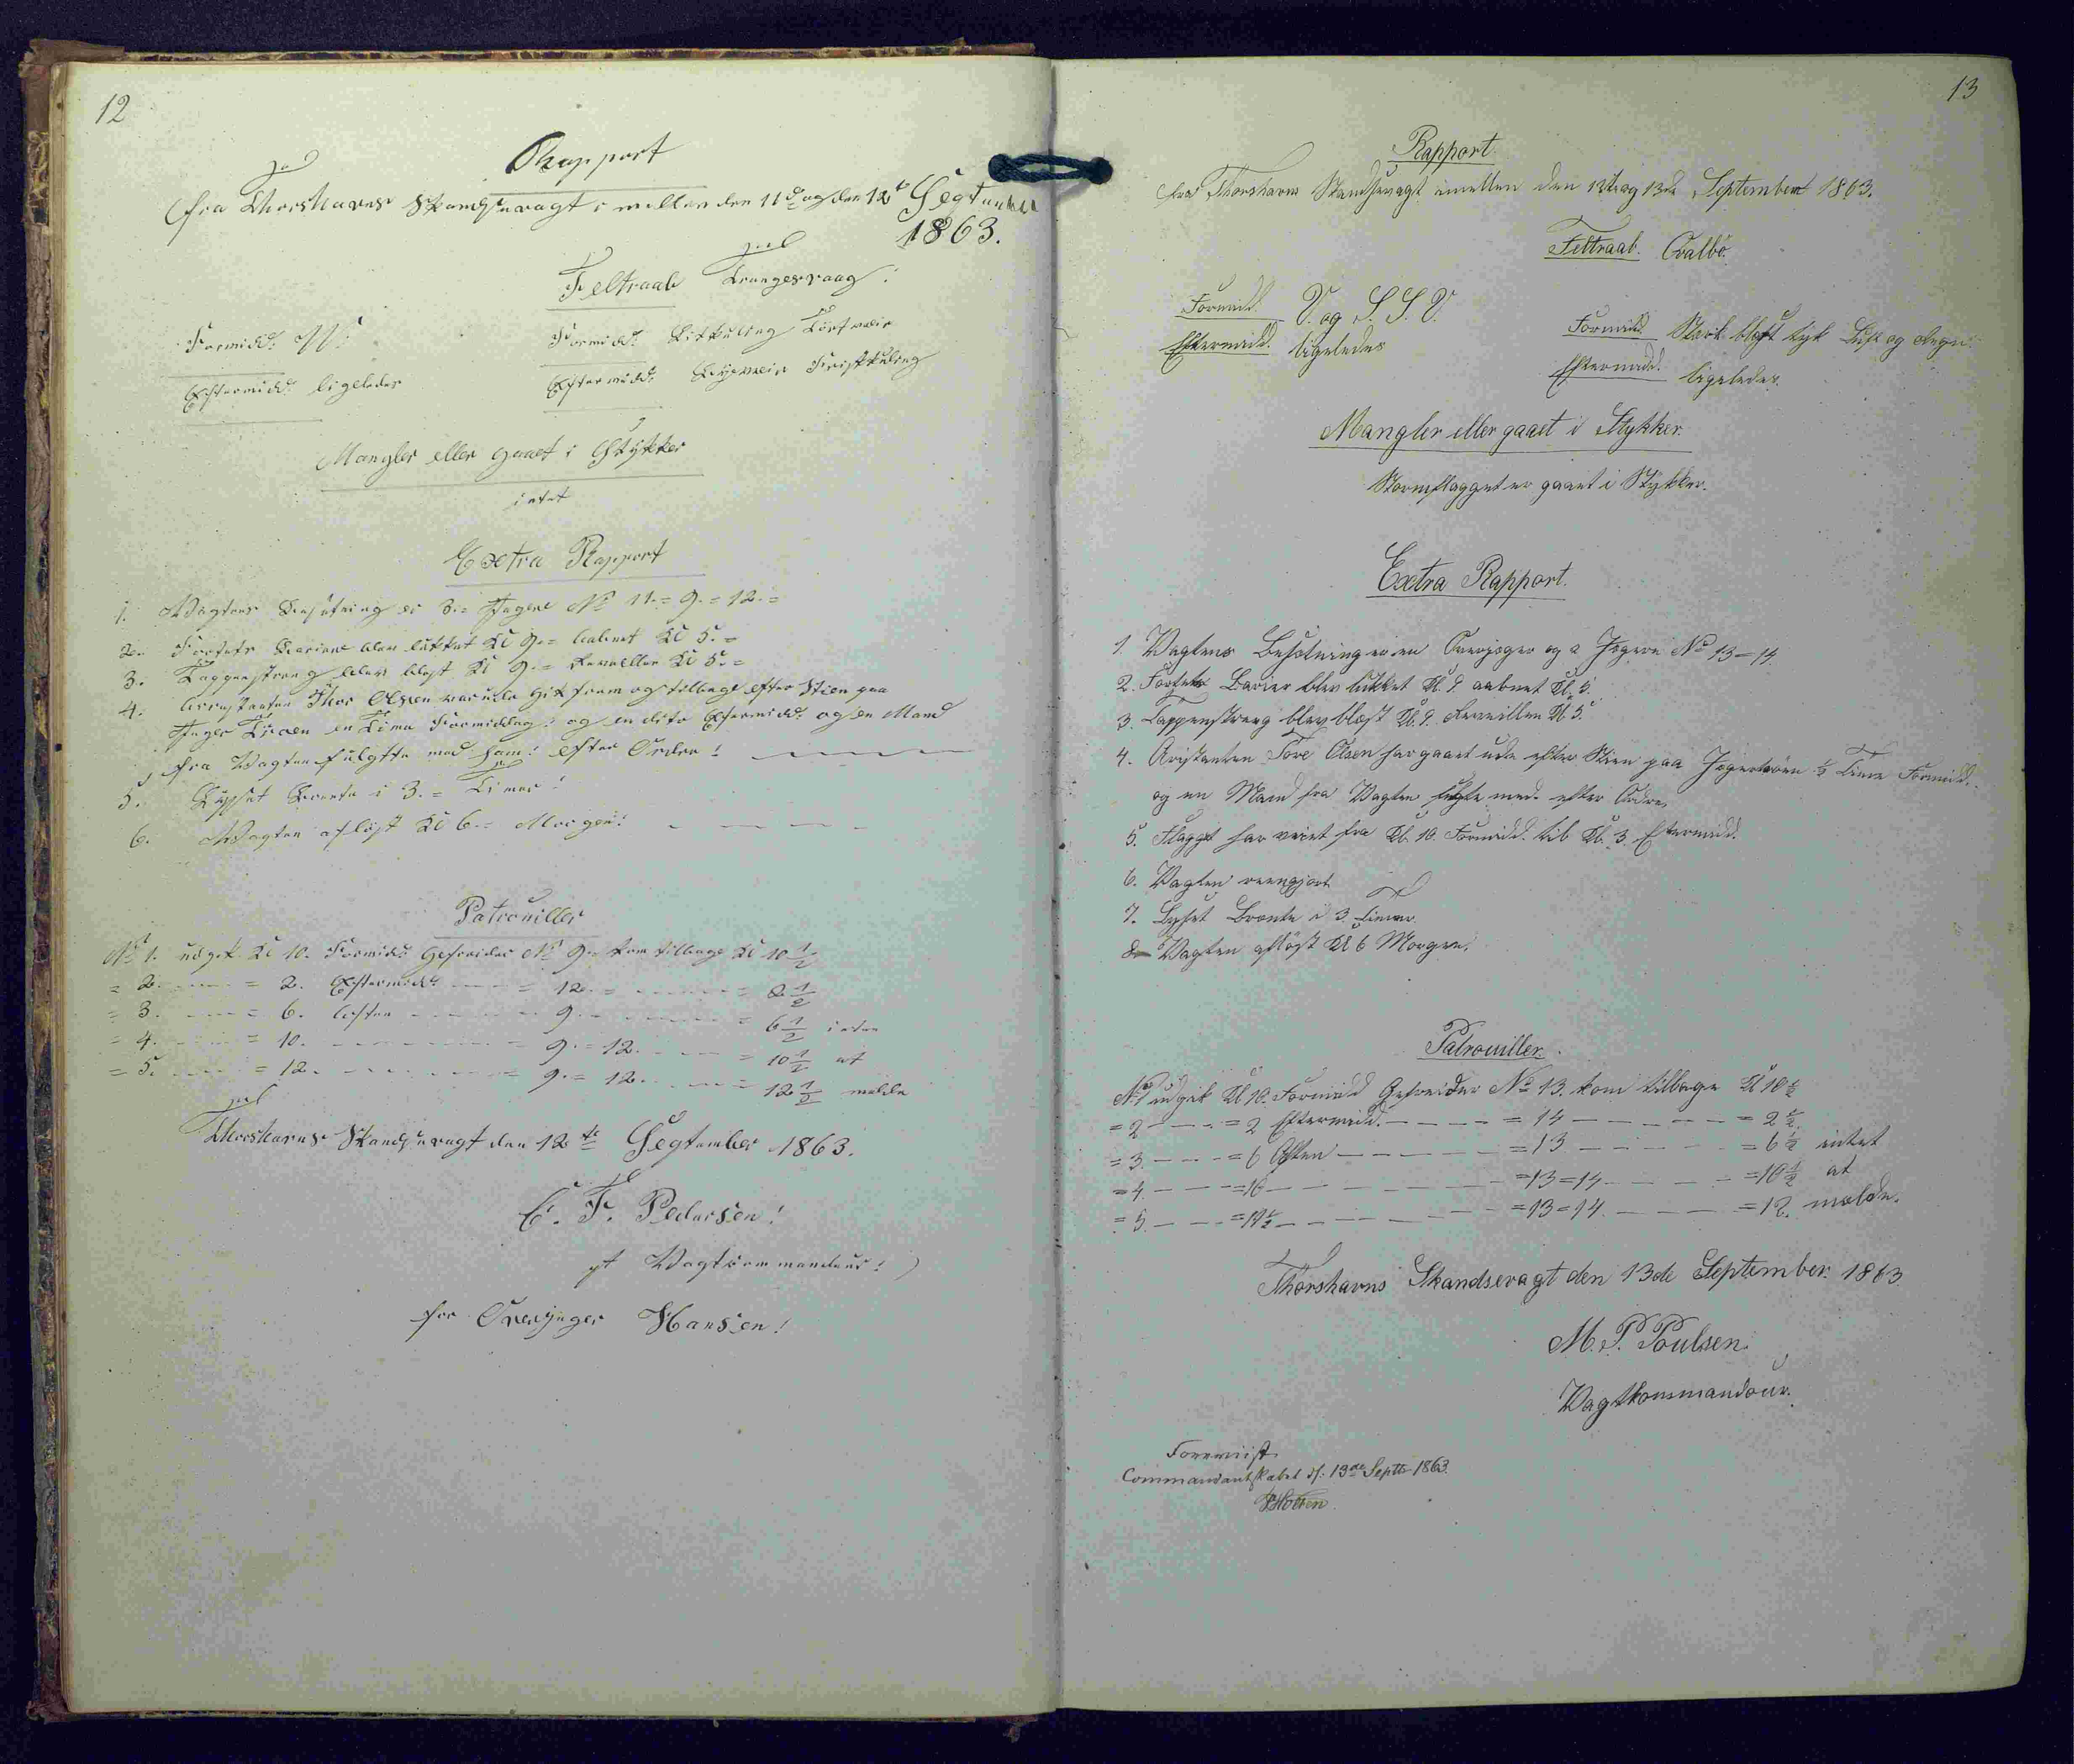 12
Rapport
fra Thorshavns Skandsevagt imellem den 11te og den 12te Septumber
1863.
Feltraab Trangesvaag!
Formidd: V:
Formidd: Litkuling Tört veir
Eftermidd: ligeledes
Eftermidd: Friskkuling
Mangler eller gaaet i Stykker
intet
Extra Rapport
1. Vagtens Besætning er 3 = Jægere No 11 = 9 = 12 =
2. Fortets Bariere blev lukket Kl 9 = aabnet Kl 5 =
3. Tappenstreng blev blæst Kl 9 = Reveillen Kl 5 =
4. Arrestanten Thor Olsen var ude gik frem og tilbage efter Stien paa
Jæger en Time Formiddag: og en dito Eftermidd: og en Mand
fra Vagten fulgte med ham: efter Ordre!
5. Lyset Brente i 3 = Timer!
6. Vagten aflöst Kl 6 = Morgen!
Patrouiller
No 1. udgik Kl 10. Formidd: Gefreider No 9 = kom tilbage Kl 10 1/2
= 2. = 2. Eftermidd: = 12. = 2 1/2
= 3. = 6. Aften 9. = 6 1/2 intet
= 4. = 10. = 9 = 12. = 10 1/2 at
= 5. = 12. = 9 = 12. = 12 1/2 melde
Thorshavns Skandsevagt den 12te September 1863.
C. F. Pedersen!
pt Vagtcommandeur!
for Overjæger Hansen!
13
Rapport
fra Thorshavns Skandsevagt imellem den 12te og 13de September 1863.
Feltraab. Qvalbö.
Formidd. V. og S. S. V.
Formidd. Stærk blæst tyk Luft og Regn
Eftermidd. ligeledes
Eftermidd. ligeledes.
Mangler eller gaaet i Stykker.
Stormflagget er gaaet i Stykker.
Extra Rapport.
1. Vagtens Besætning er en Overjæger og 2 Jægere No 13 = 14.
2. Fortets Barier blev lukket Kl. 9. aabnet Kl. 5.
3. Tappenstreng blev blæst Kl. 9. Reveillen Kl 5.
4. Aristanten Tore Olsen har gaaet ude efter Stien paa 1/2 Time Formidd.
og en Mand fra Vagten fulgte med efter Ordre.
5. Flagget har veiet fra Kl. 10 Formidd. til Kl. 3. Eftermidd.
6. Vagten reengjort
7. Lyset Brente i 3 Timer.
8 Vagten aflöst Kl 6 Morgen.
Patrouiller.
No 1 udgik Kl 10. Formidd Gefreider No 13. kom tilbage Kl 10 1/2
= 2 = 2 Eftermidd. = 14 = 2 1/2
= 3. = 6 Aften = 13 = 6 1/2 intet
= 4. = 10 = 13 = 14 = 10 1/2 at
= 5. = 11 1/2 = 13 = 14. = 12. melde.
Thorshavns Skandsevagt den 13de September. 1863
M. P. Poulsen.
Vagtkommandour.
Foreviist
Commandantskabet d. 13de Septb 1863.